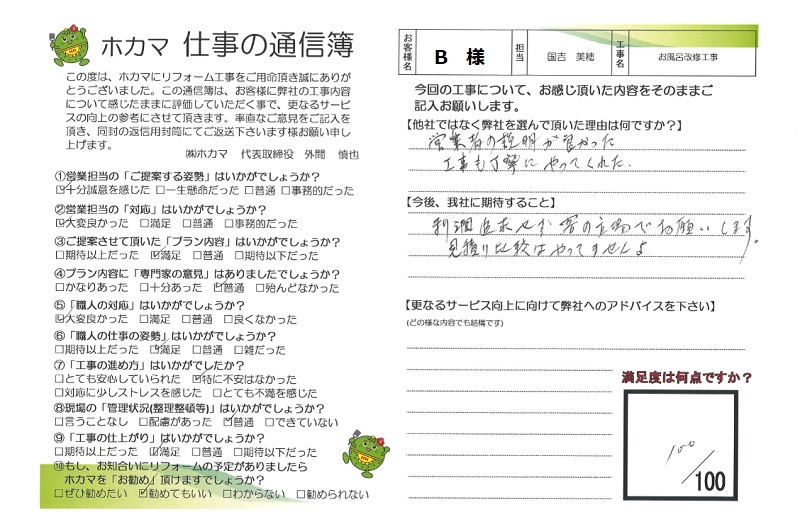 ホカマ 仕事の通信簿
この度は、ホカマにリフォーム工事をご用命頂き誠にありが
とうございました。この通信簿は、お客様に弊社の工事内容
について感じたままに評価していただく事で、更なるサービ
スの向上の参考にさせて頂きます。率直なご意見をご記入を
頂き、同封の返信用封筒にてご返送下さいます様お願い申し
上げます。
㈱ホカマ 代表取締役 外間 慎也
①営業担当の「ご提案する姿勢」はいかがでしょうか?
☑十分誠意を感じた □一生懸命だった □普通 □事務的だった
②営業担当の「対応」はいかがでしょうか?
☑大変良かった □満足 □普通 □事務的だった
③ご提案させて頂いた「プラン内容」はいかがでしょうか?
□期待以上だった ☑満足 □普通 □期待以下だった
④プラン内容に「専門家の意見」はありましたでしょうか?
□かなりあった □十分あった ☑普通 □殆んどなかった
⑤「職人の対応」はいかがでしょうか?
☑大変良かった □満足 □普通 □良くなかった
⑥「職人の仕事の姿勢」はいかがでしょうか?
□期待以上だった ☑満足 □普通 □雑だった
⑦「工事の進め方」はいかがでしたか?
□とても安心していられた ☑特に不安はなかった
□対応に少しストレスを感じた □とても不満を感じた
⑧現場の「管理状況(整理整頓等)」はいかがでしょうか?
□言うことなし □配慮があった ☑普通 □できていない
⑨「工事の仕上がり」はいかがでしょうか?
□期待以上だった ☑満足 □普通 □期待以下だった
⑩もし、お知合いにリフォームの予定がありましたら
ホカマを「お勧め」頂けますでしょうか?
□ぜひ勧めたい ☑勧めてもいい □わからない □勧められない
お客様名 B 様 担当 国吉 美穂 工事名 お風呂改修工事
今回の工事について、お感じ頂いた内容をそのままご
記入お願いします。
【他社ではなく弊社を選んで頂いた理由は何ですか?】
営業者の説明が良かった
工事も丁寧にやってくれた.
【今後、我社に期待すること】
利潤追求せず客の立場でお願いします。
見積り比較はやってませんよ
【更なるサービス向上に向けて弊社へのアドバイスを下さい】
(どの様な内容でも結構です)
満足度は何点ですか?
100
/100